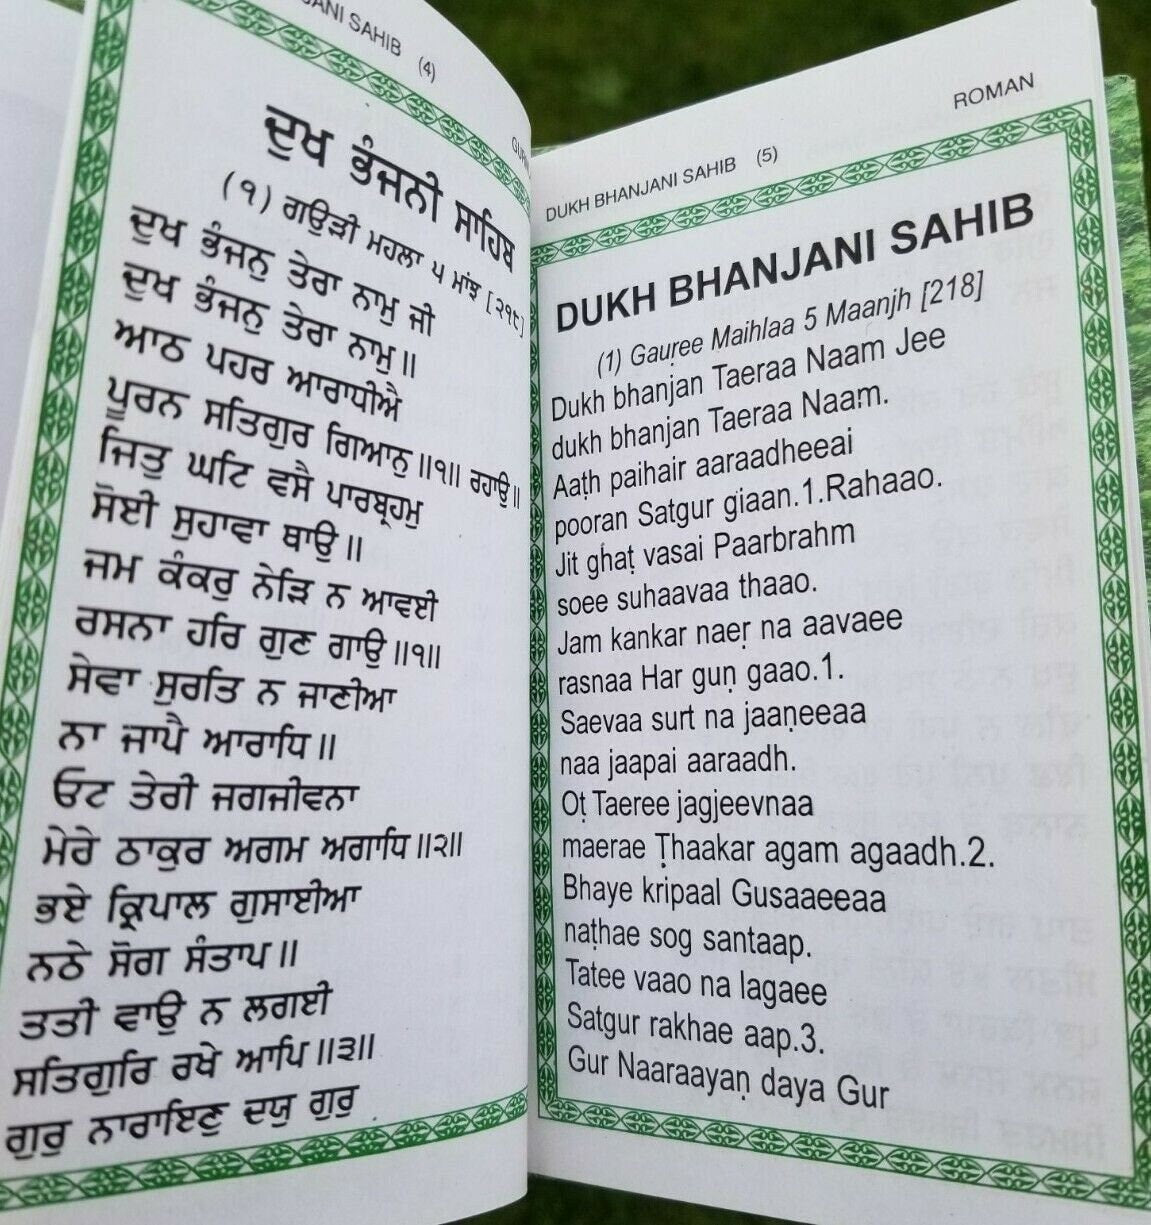 ANI SAHIB (4)
ਦੁਖ ਭੰਜਨੀ ਸਾਹਿਬ
(੧) ਗਉੜੀ ਮਹਲਾ ੫ ਮਾਂਝ [੨੧੮]
ਦੁਖ ਭੰਜਨੁ ਤੇਰਾ ਨਾਮੁ ਜੀ
ਦੁਖ ਭੰਜਨੁ ਤੇਰਾ ਨਾਮੁ॥
ਆਠ ਪਹਰ ਆਰਾਧੀਐ
ਪੂਰਨ ਸਤਿਗੁਰ ਗਿਆਨੁ॥੧॥ ਰਹਾਉ॥
ਜਿਤੁ ਘਟਿ ਵਸੈ ਪਾਰਬ੍ਰਹਮੁ
ਸੋਈ ਸੁਹਾਵਾ ਥਾਉ॥
ਜਮ ਕੰਕਰੁ ਨੇੜਿ ਨ ਆਵਈ
ਰਸਨਾ ਹਰਿ ਗੁਣ ਗਾਉ॥੧॥
ਸੇਵਾ ਸੁਰਤਿ ਨ ਜਾਣੀਆ
ਨਾ ਜਾਪੈ ਆਰਾਧਿ॥
ਓਟ ਤੇਰੀ ਜਗਜੀਵਨਾ
ਮੇਰੇ ਠਾਕੁਰ ਅਗਮ ਅਗਾਧਿ॥੨॥
ਭਏ ਕ੍ਰਿਪਾਲ ਗੁਸਾਈਆ
ਨਠੇ ਸੋਗ ਸੰਤਾਪ॥
ਤਤੀ ਵਾਉ ਨ ਲਗਈ
ਸਤਿਗੁਰਿ ਰਖੇ ਆਪਿ॥੩॥
ਗੁਰੁ ਨਾਰਾਇਣੁ ਦਯੁ ਗੁਰੁ
DUKH BHANJANI SAHIB (5) ROMAN
DUKH BHANJANI SAHIB
(1) Gauṛee Maihlaa 5 Maanjh [218]
Dukh bhanjan Taeraa Naam Jee
dukh bhanjan Taeraa Naam.
Aaṭh paihair aaraadheeai
pooran Satgur giaan.1.Rahaao.
Jit ghaṭ vasai Paarbrahm
soee suhaavaa thaao.
Jam kankar naeṛ na aavaee
rasnaa Har guṇ gaao.1.
Saevaa surt na jaaṇeeaa
naa jaapai aaraadh.
Oṭ Taeree jagjeevnaa
maerae Ṭhaakar agam agaadh.2.
Bhaye kripaal Gusaaeeaa
naṭhae sog santaap.
Tatee vaao na lagaee
Satgur rakhae aap.3.
Gur Naaraayaṇ daya Gur